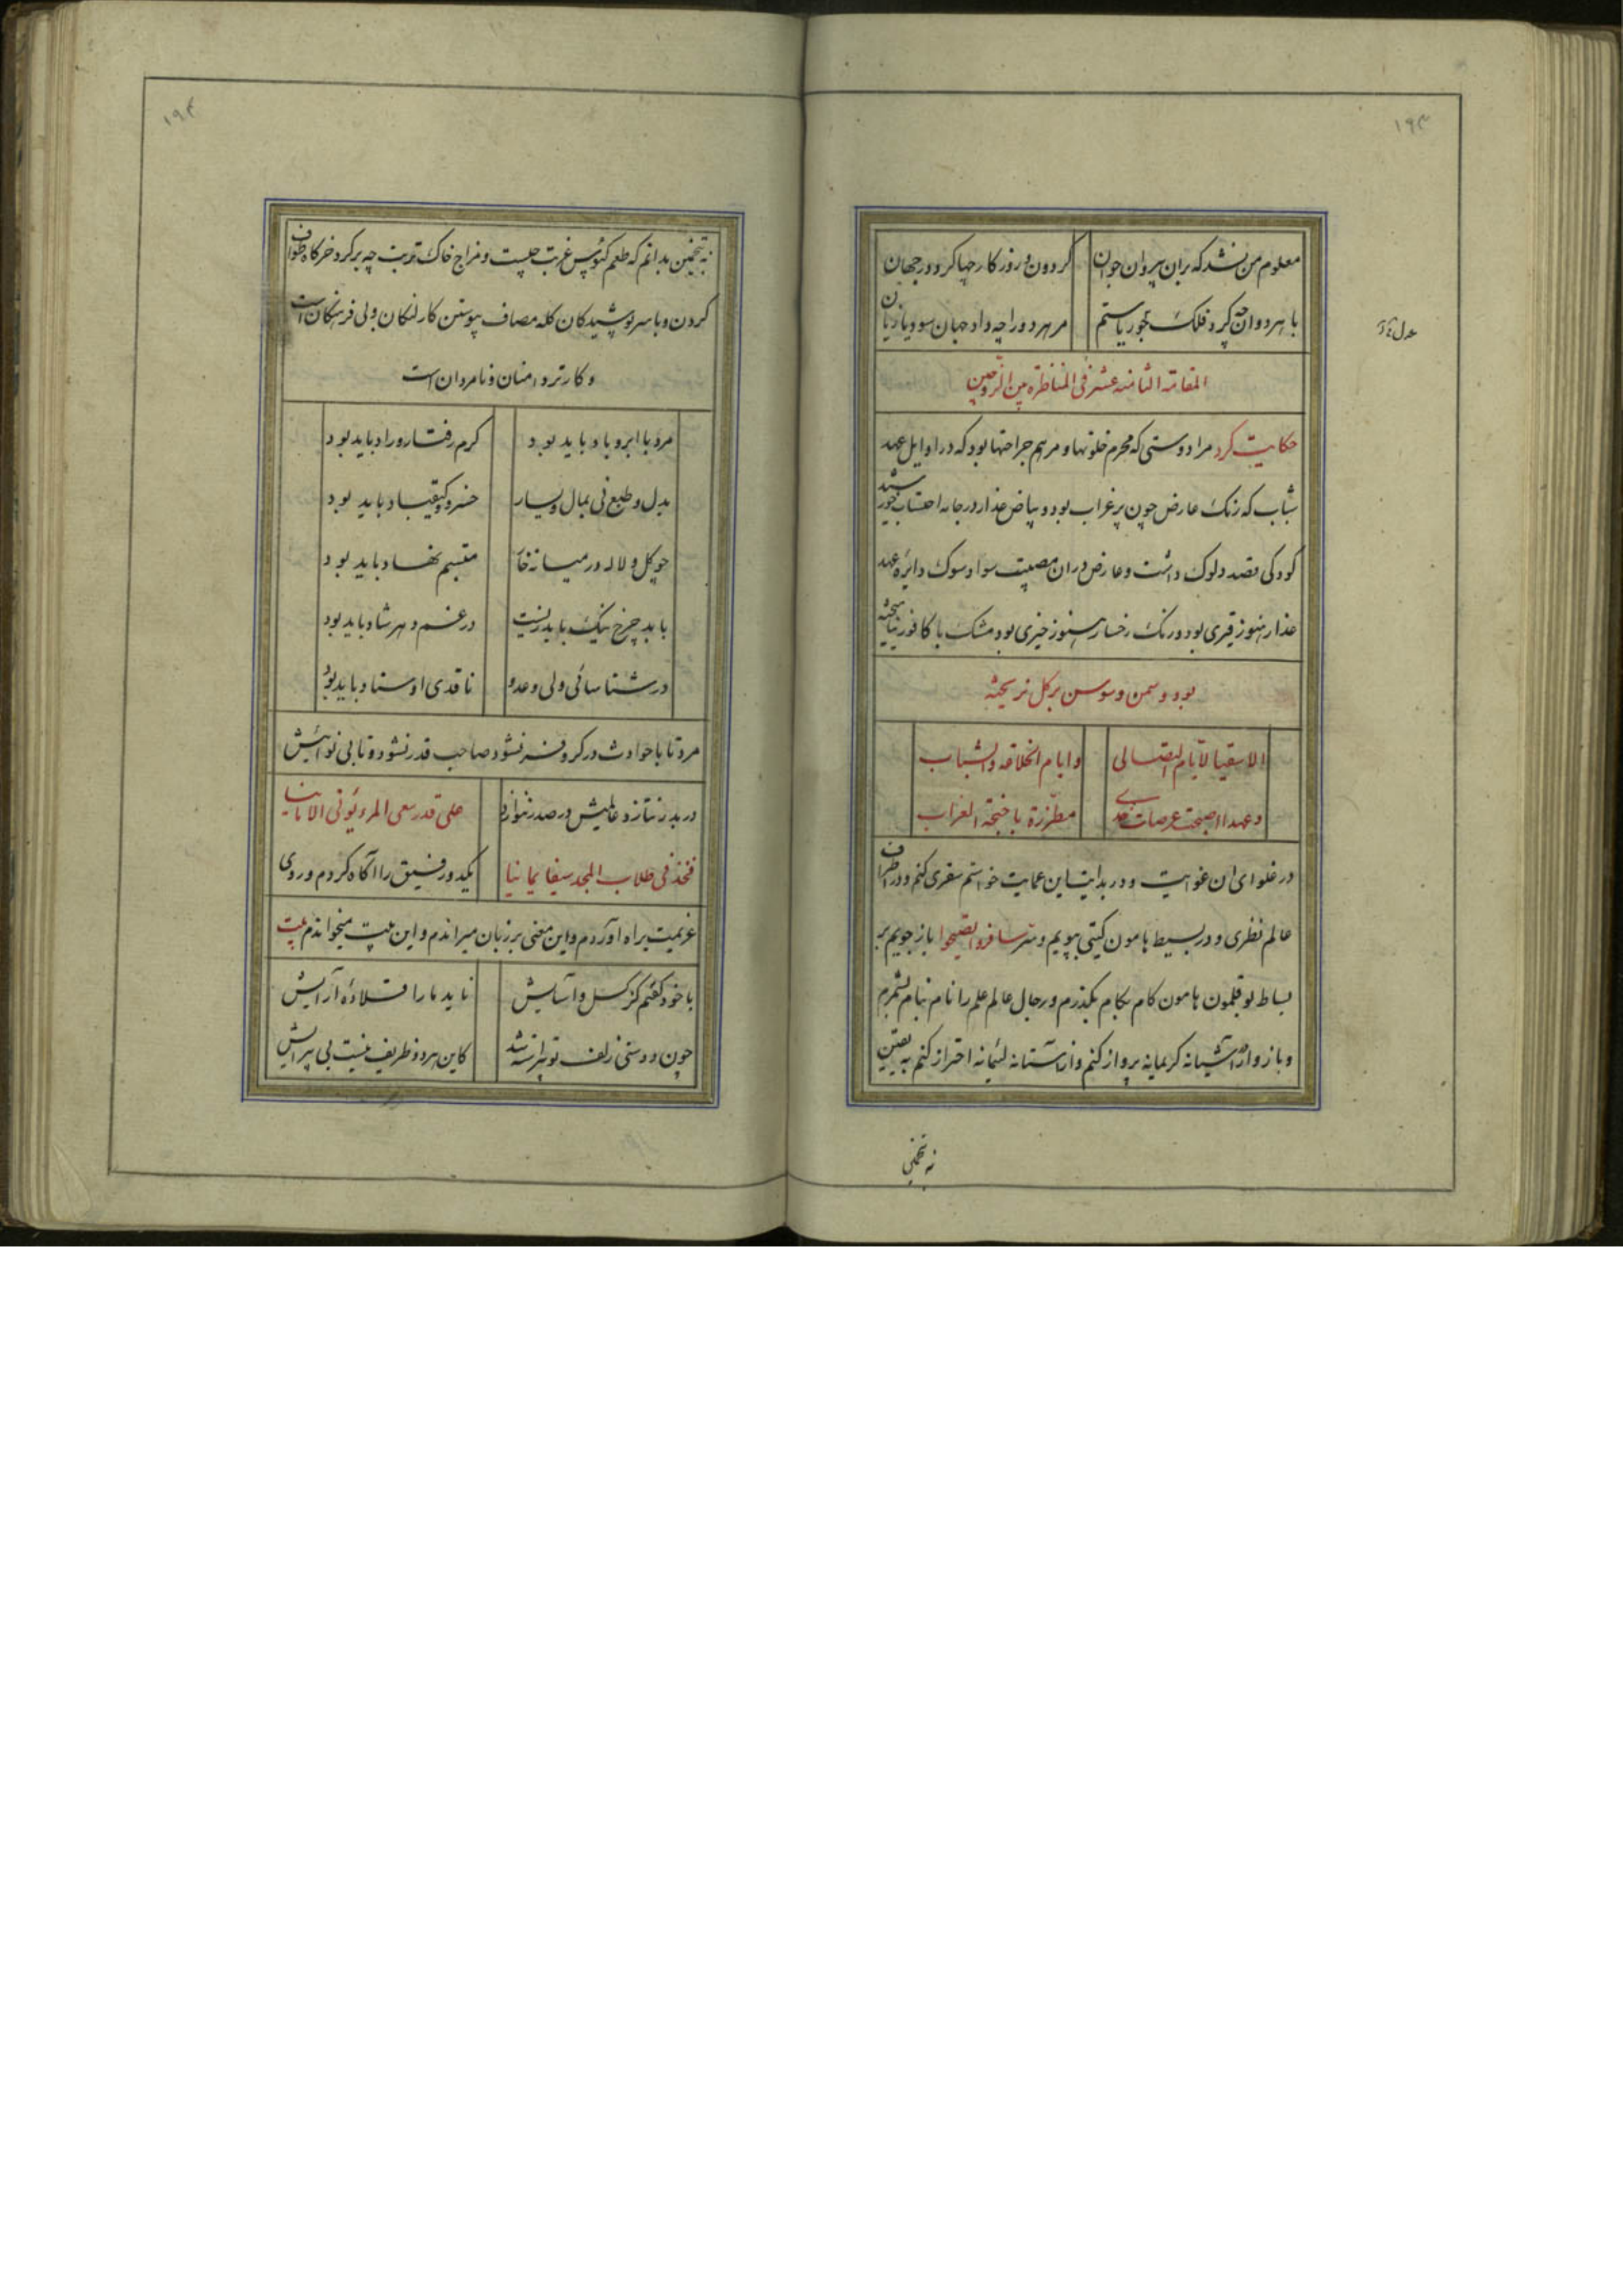 ۱۹۳
معلوم من نشد که بران پیروان جوان گردون و روزگار چها کرد در جهان
با هر دوان چه کرد فلک بجور یا ستم مر هر دو را چه داد جهان سود یا زیان
عدل
المقامة الثامنه عشر فی المناظره بین الزوجین
حکایت کرد مرا دوستی که محرم خلوتها و مرهم جراحتها بود که در اوایل عهد
شباب که رنک عارض چون پر غراب بود و بیاض عذار در جامه احتساب خورشید
کودکی قصد دلوک داشت و عارض دران مصیبت سواد سوک دایره عهد
عذار هنوز قیری بود و رنک رخسار هنوز خیری بود مشک با کافور نیامیخته
بود و سمن و سوسن بر کل نریخته
الا سقیا لایام التصابی وایام الخلاقه والشباب
وعهدا اصبحت عرصات مطرزة باجنحة الغراب
در غلوای ان غوایت و در بدایت این عمایت خواستم سفری کنم و در اطراف
عالم نظری و در بسیط هامون کیتی بپویم و سر سافروا تصحوا باز جویم بر
بساط بوقلمون هامون کام بکام بکذرم و رجال عالم علم را نام بنام بشمرم
و باز وار از آشیانه کریمانه پرواز کنم و از آستانه لئیمانه احتراز کنم به یقین
نه تخمین
۱۹۴
نه تخمین بدانم که طعم کئوس غربت چیست و مزاج خاک تربت چه بر کرد خرکاه طواف
کردن و با سرپوشیدکان کله مصاف پیوستن کار لنکان و لی فرهنکان است
و کار تر دامنان و نامردان است
مرد با ابر و باد باید بود کرم رفتار و راد باید بود
بدل و طبع نی بمال و یسار خسرو و کیقباد باید بود
چو کل و لاله در میانه خار متبسم نهاد باید بود
با بد چرخ نیک باید زیست در غم دهر شاد باید بود
در شناسائی ولی و عدو ناقدی اوستاد باید بود
مرد تا با حوادث در کر و فر نشود صاحب قدر نشود و تا بی نوائیش
در بدر نتازد عالیش در صدر ننوازد علی قدر سعی المرء یؤتی الامانیا
فخذ فی طلاب المجد سیفا یمانیا یکدو رفیق را آکاه کردم و روی
عزیمت براه آوردم و این معنی بر زبان میراندم و این بیت میخواندم بیت
با خود کفتم کز کسل و آسایش ناید ما را قلاده آرایش
چون دوستی زلف تو پیراسته شد کاین هر دو ظریف نیست بی پیرایش